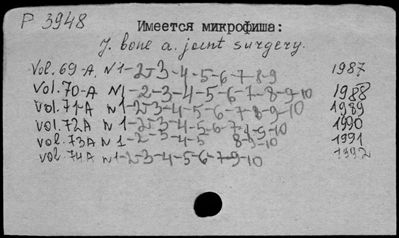 P 3948
Имеется микрофиша:
J. bone a. joint surgery.
Vol. 69-A, N1-2-3-4-5-6-7-8-9 1987
Vol. 70-A N1-2-3-4-5-6-7-8-9-10 1988
Vol. 71-A N1-2-3-4-5-6-7-8-9-10 1989
vol. 72A N1-2-3-4-5-6-7-8-9-10 1990
vol. 73A N1-2-3-4-5 8-9-10 1991
vol 74A N1-2-3-4-5-6-7-9-10 1992